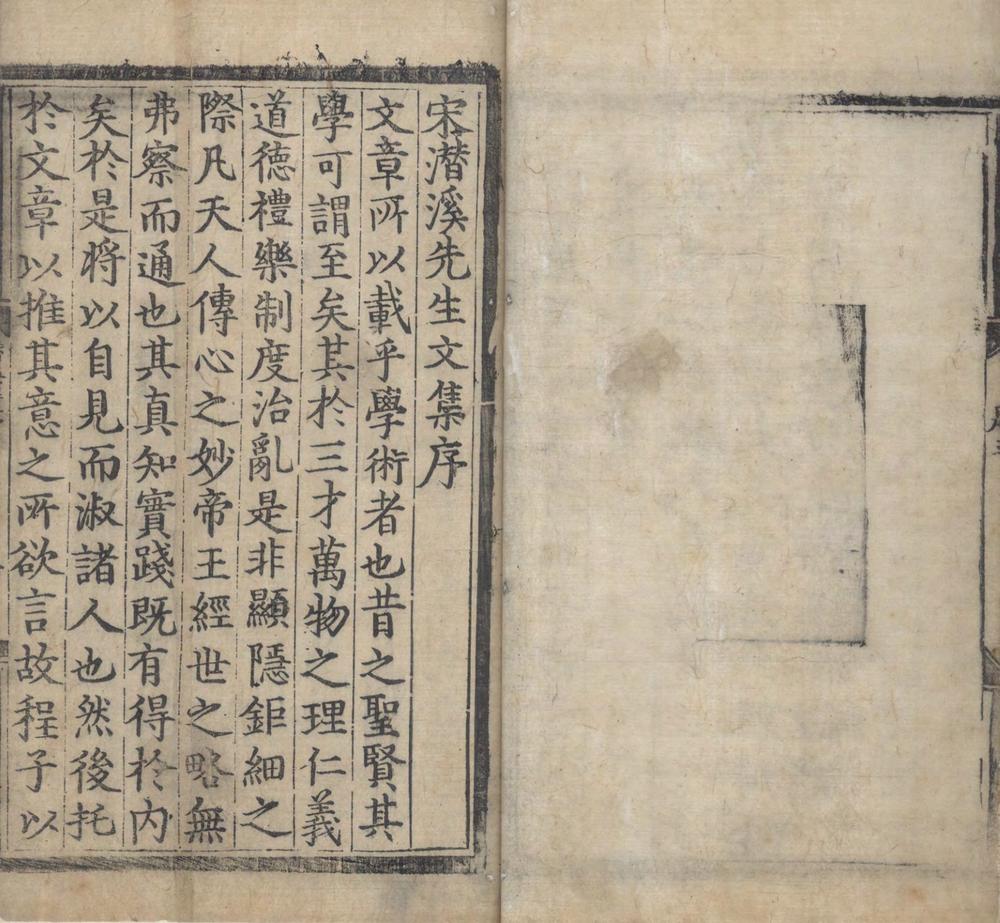 宋潛溪先生文集序
文章所以載乎學術者也昔之聖賢其
學可謂至矣其於三才萬物之理仁義
道德禮樂制度治亂是非顯隱鉅細之
際凡天人傳心之妙帝王經世之略無
弗察而通也其真知實踐既有得於内
矣於是将以自見而淑諸人也然後托
於文章以推其意之所欲言故程子以